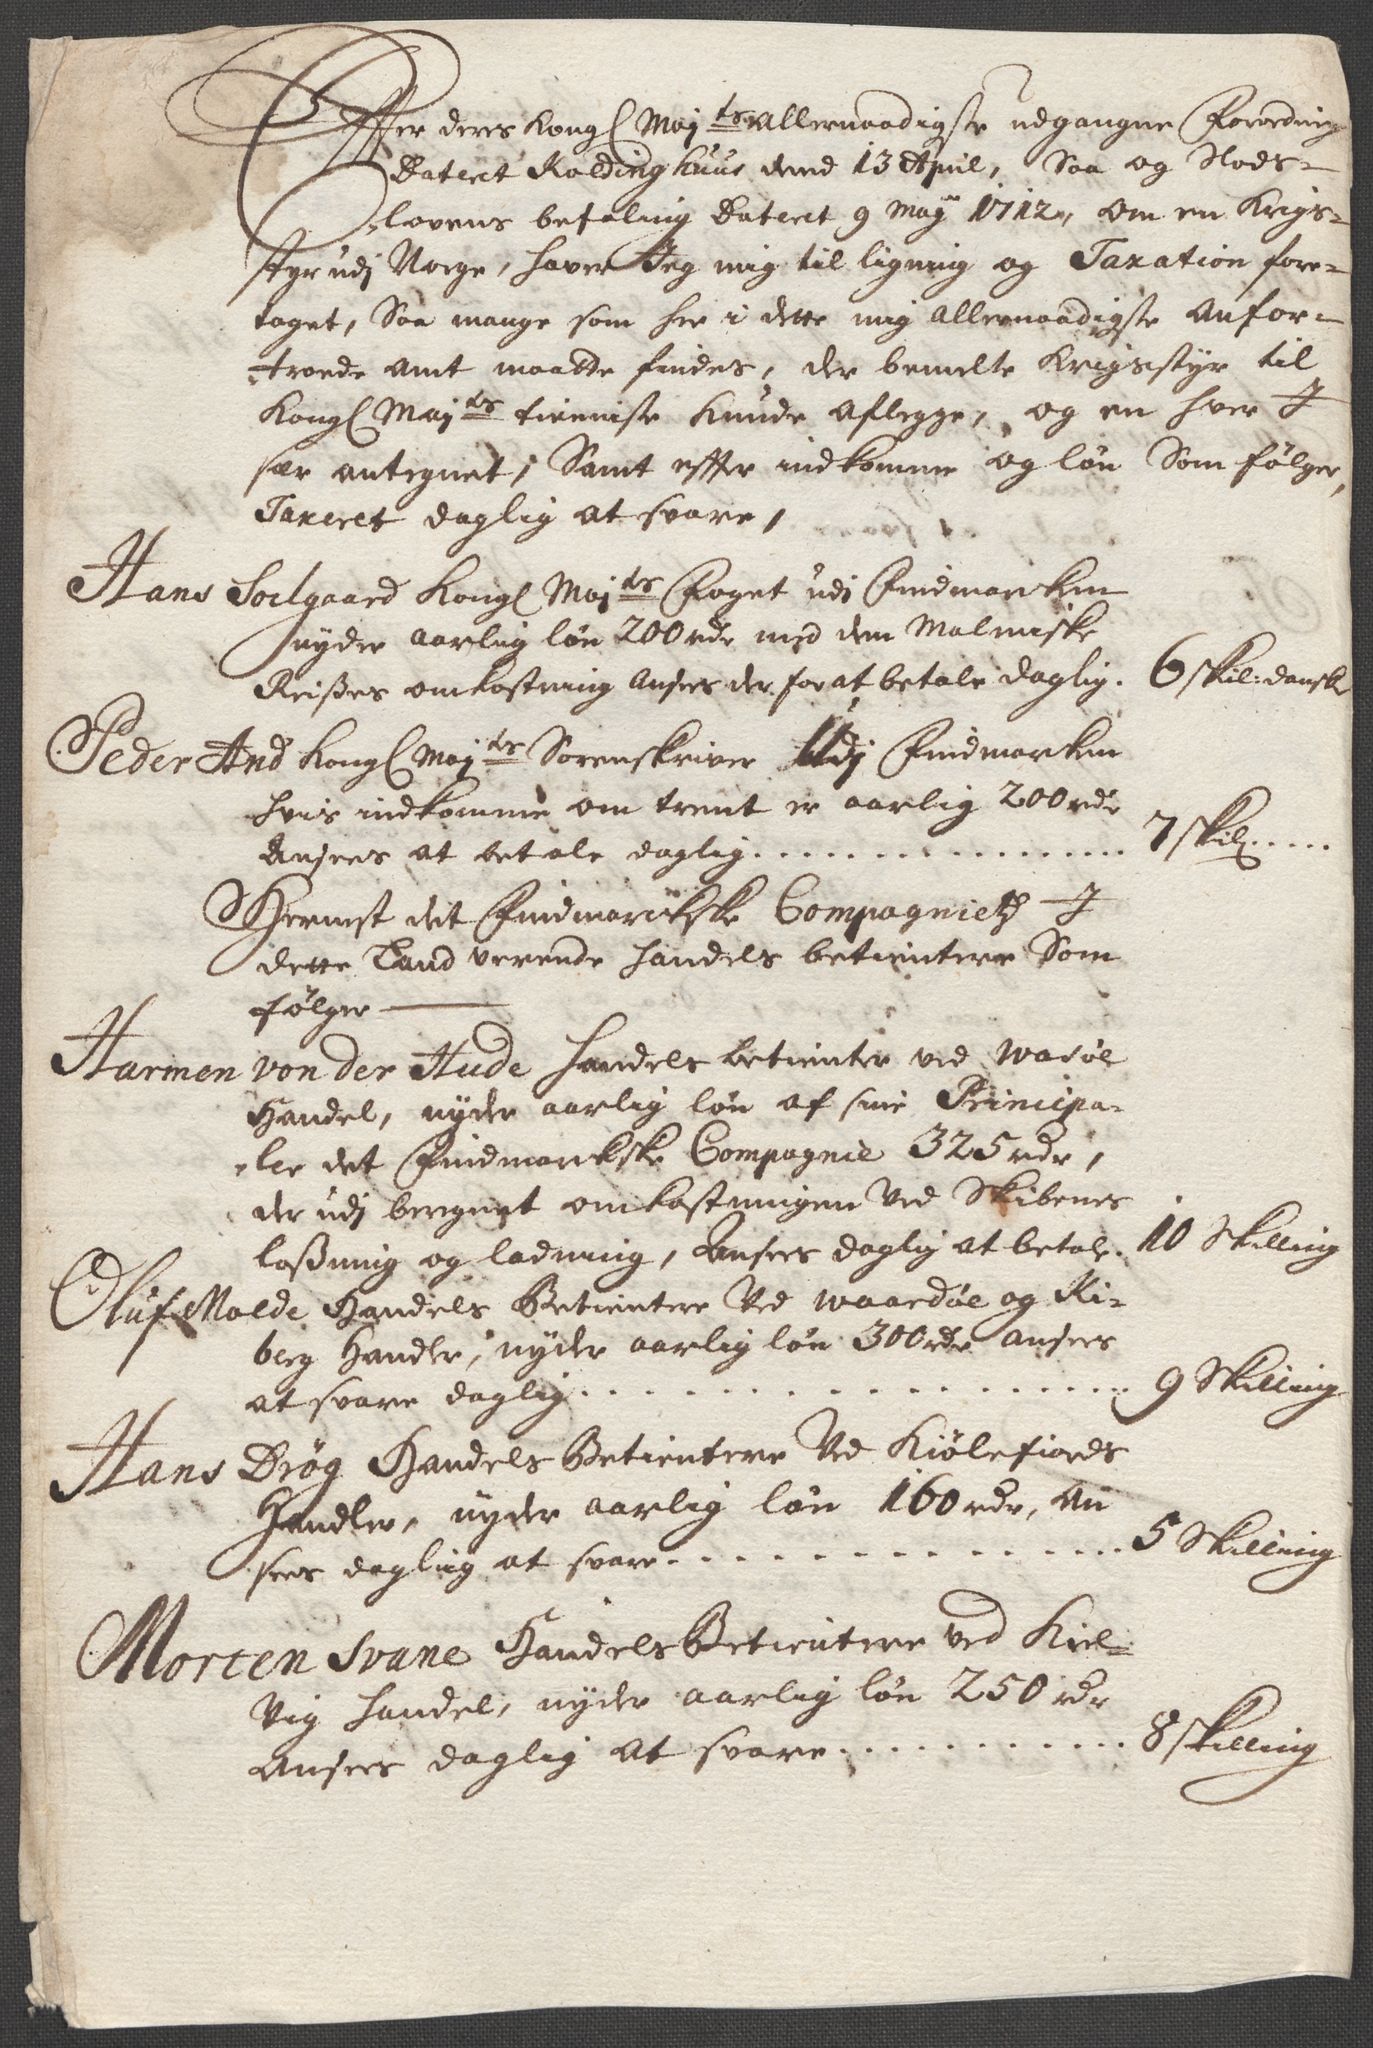 Effter deres Kongl Mayts Allernaadigste udgangne Forordning
Datert Koldinghuus dend 13 April, Saa og Slods-
lovens befaling Datert 9 Maij 1712, om en Krigs-
styr udj Norge, haver Jeg mig til ligning og Taxation fore-
taget, Saa mange som her i dette mig allernaadigste anfor-
troede Amt maatte findes, der bemelte Krigsstyr til
Kongl Mayts tienniste kunde aflegge, og en hver J
sær antegnet, Samt effter indkomme og løn Som følger,
Taxeret daglig at svare,
Hans Soelgaard Kongl Mayts Foget udi Findmarken
nyder aarlig løn 200 rdr med dem Malmiske
Reißes omkostning Ansees der for at betale daglig. 6 skil: danske
Peder And Kongl Mayts Sorenskriver Udj Findmarken
hvis indkomme om trent er aarlig 200 rdr
Ansees at betale daglig. . . . . 7 skil. . . . .
Hernest det Findmarckske Compagnietz J
dette Land verende handels betientere Som
følger
Harmen von der Hude Handels betienter ved Wadsøe
Handel, nyder aarlig løn af sine Principa-
ler det Findmarckske Compagnie 325 rdr,
der udj beregnet omkostningen Ved Skibenes
loßning og ladning, Ansees daglig at betale. 10 Skilling
Oluf Molde Handels Betientere Ved Waardøe og Ki-
berg Handler, nyder aarlig løn 300 rdr ansees
at svare daglig. . . . . 9 Skilling
Hans Drøg Handels Betientere Ved Kiølefiords
Handler, nyder aarlig løn 160 rdr, An
sees daglig at svare. . . . . 5 Skilling
Morten Svane Handels Betientere ved Kiel-
vig Handel, nyder aarlig løn 250 rdr
Ansees daglig at svare. . . . . 8 skilling